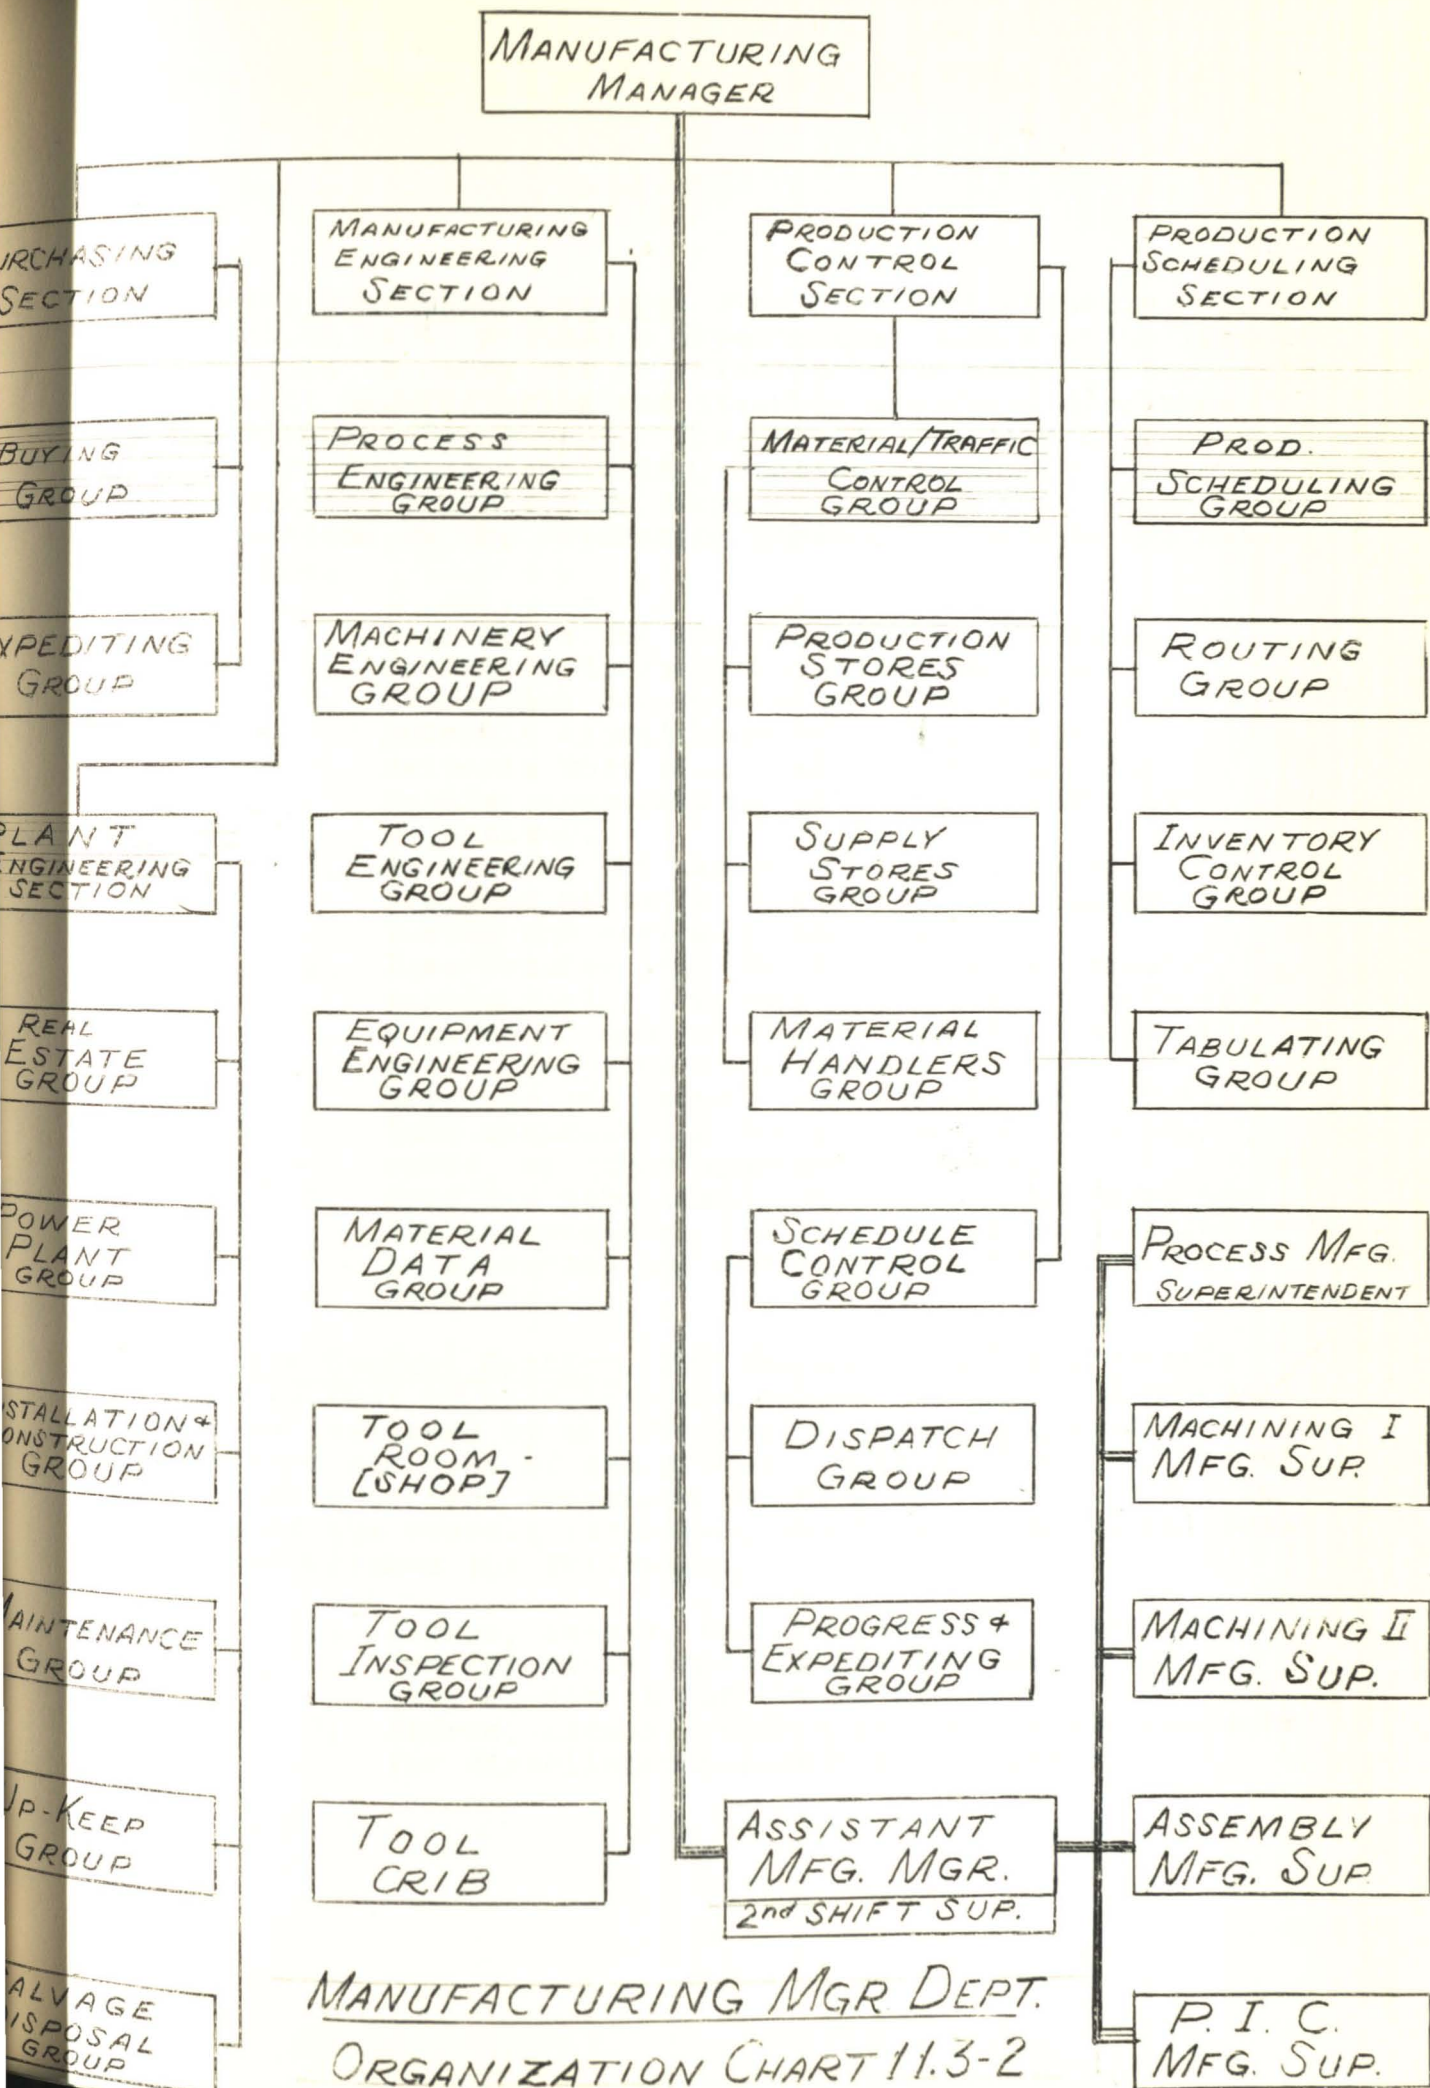 MANUFACTURING
MANAGER
URCHASING
SECTION
BUYING
GROUP
XPEDITING
GROUP
PLANT
ENGINEERING
SECTION
REAL
ESTATE
GROUP
POWER
PLANT
GROUP
STALLATION &
ONSTRUCTION
GROUP
MAINTENANCE
GROUP
UP-KEEP
GROUP
ALVAGE
ISPOSAL
GROUP
MANUFACTURING
ENGINEERING
SECTION
PROCESS
ENGINEERING
GROUP
MACHINERY
ENGINEERING
GROUP
TOOL
ENGINEERING
GROUP
EQUIPMENT
ENGINEERING
GROUP
MATERIAL
DATA
GROUP
TOOL
ROOM -
[SHOP]
TOOL
INSPECTION
GROUP
TOOL
CRIB
PRODUCTION
CONTROL
SECTION
MATERIAL/TRAFFIC
CONTROL
GROUP
PRODUCTION
STORES
GROUP
SUPPLY
STORES
GROUP
MATERIAL
HANDLERS
GROUP
SCHEDULE
CONTROL
GROUP
DISPATCH
GROUP
PROGRESS &
EXPEDITING
GROUP
ASSISTANT
MFG. MGR.
2nd SHIFT SUP.
PRODUCTION
SCHEDULING
SECTION
PROD.
SCHEDULING
GROUP
ROUTING
GROUP
INVENTORY
CONTROL
GROUP
TABULATING
GROUP
PROCESS MFG.
SUPERINTENDENT
MACHINING I
MFG. SUP.
MACHINING II
MFG. SUP.
ASSEMBLY
MFG. SUP
P. I. C.
MFG. SUP.
MANUFACTURING MGR DEPT.
ORGANIZATION CHART 11.3-2